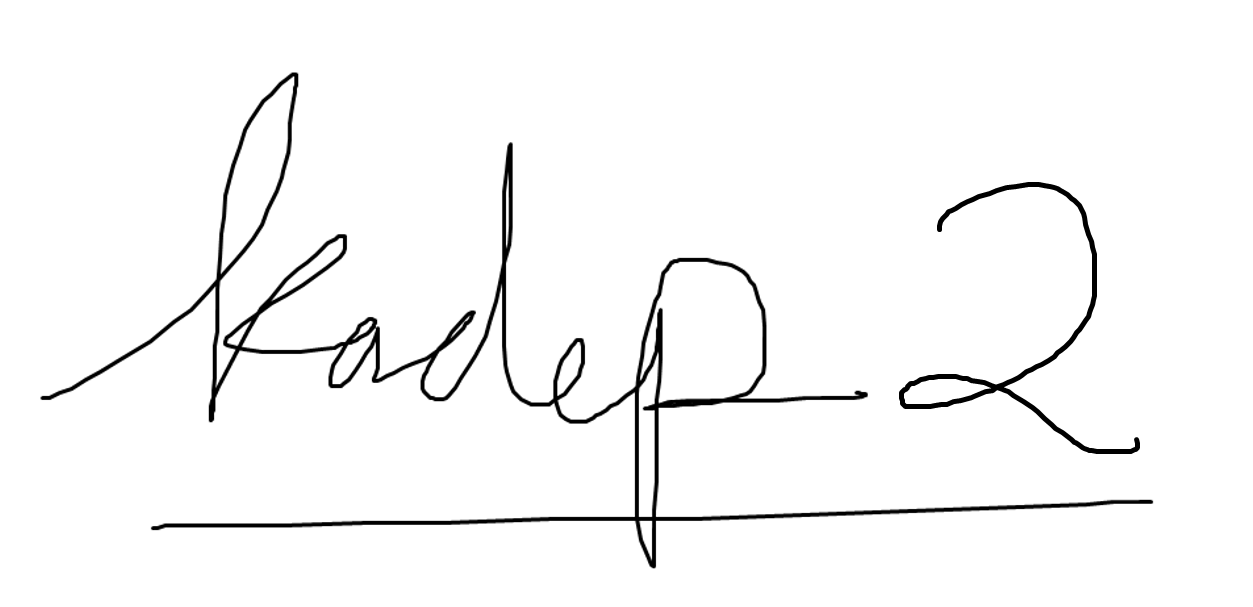 kadep 2